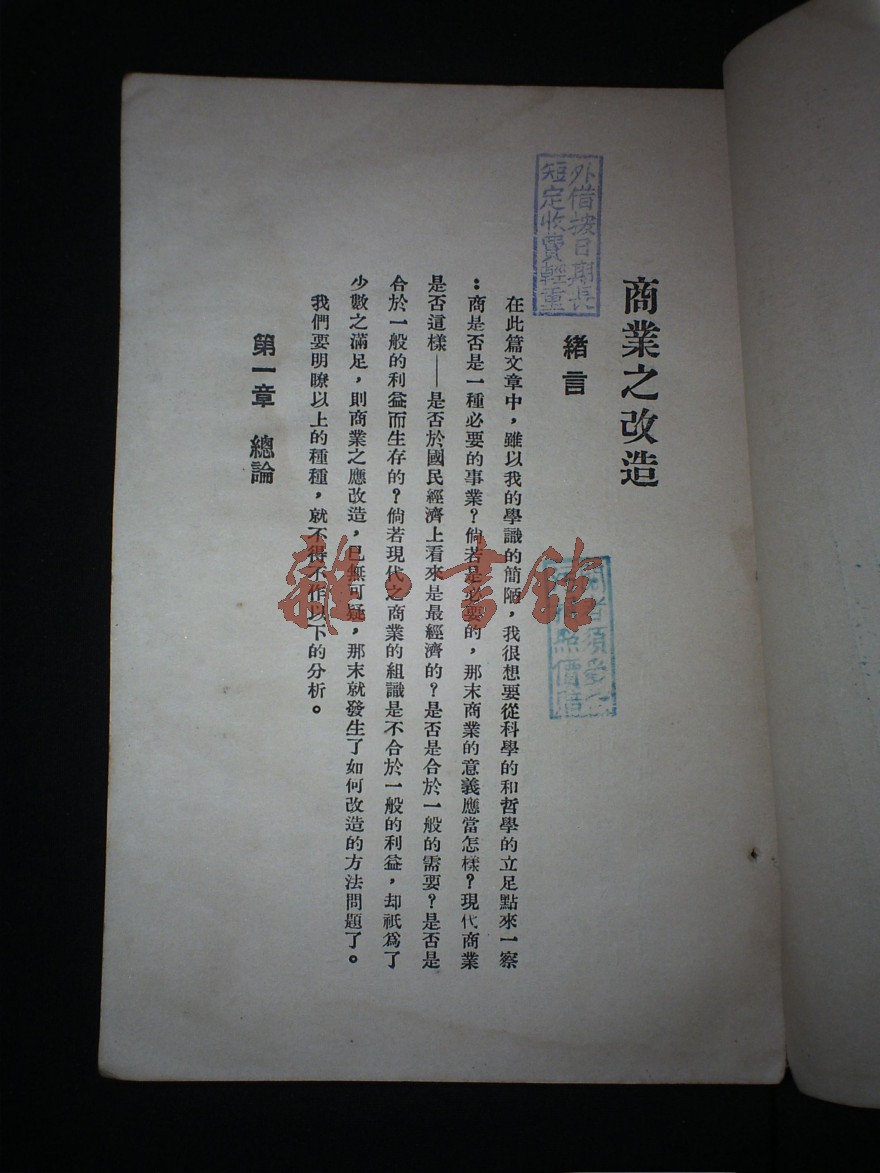 商業之改造
緒言
在此篇文章中，雖以我的學識的簡陋，我很想要從科學的和哲學的立足點來一察
：商是否是一種必要的事業？倘若是必要的，那末商業的意義應當怎樣？現代商業
是否這樣——是否於國民經濟上看來是最經濟的？是否是合於一般的需要？是否是
合於一般的利益而生存的？倘若現代之商業的組識是不合於一般的利益，却祇爲了
少數之滿足，則商業之應改造，已無可疑，那末就發生了如何改造的方法問題了。
我們要明瞭以上的種種，就不得不作以下的分析。
第一章　總論
外借按日期長
短定收費輕重
照價賠
雜·書館